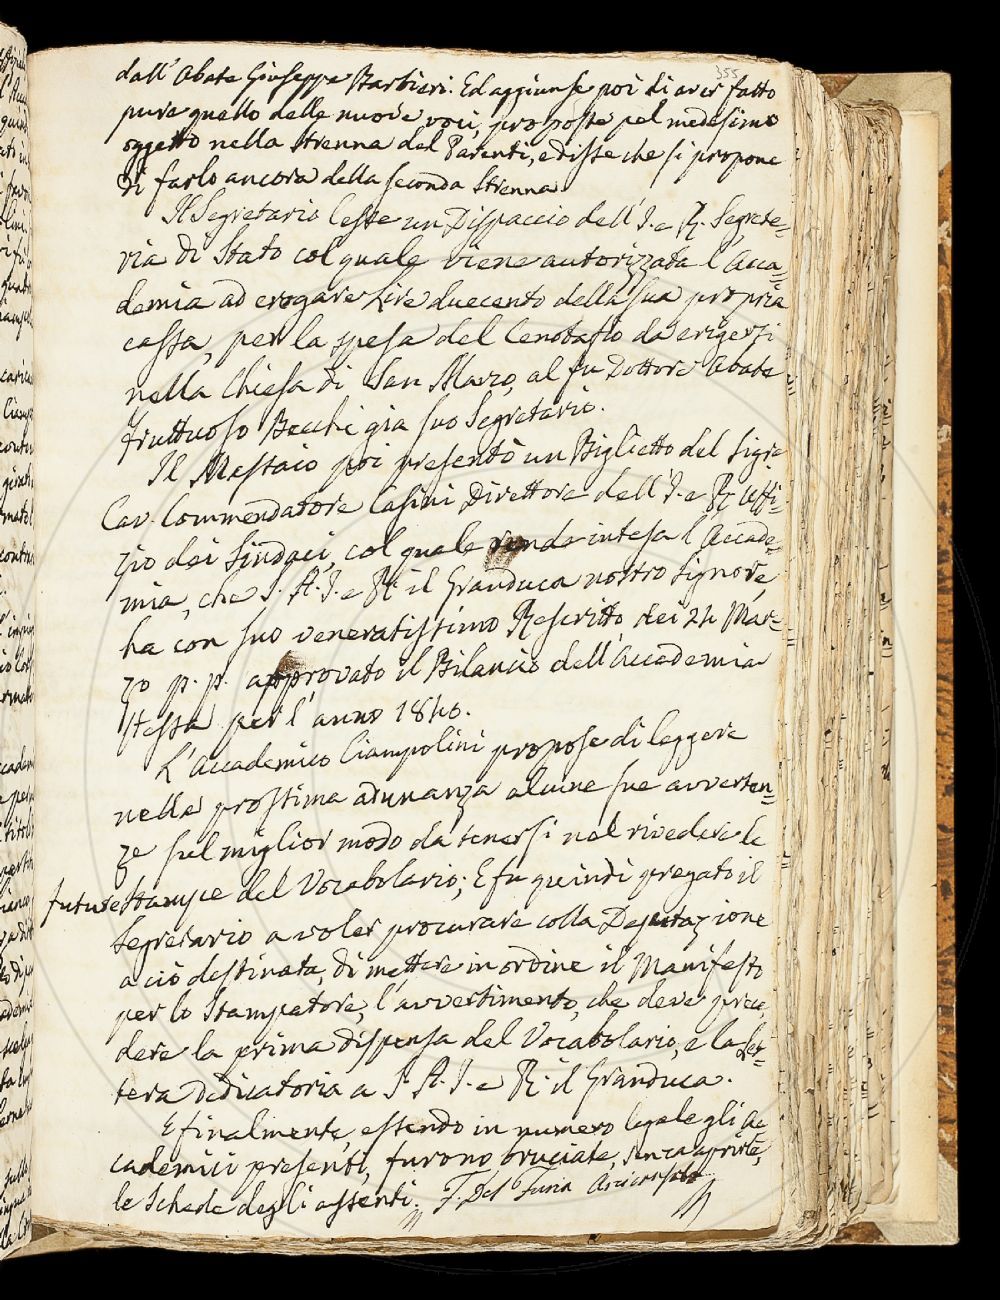 355
dall'Abate Giuseppe Barbieri. Ed aggiunse poi di aver fatto
pure quello delle nuove voci, proposte pel medesimo
oggetto nella Strenna del Parenti, e disse che si propone
di farlo ancora della seconda Strenna.
Il Segretario lesse un Dispaccio dell'I. e R. Segrete=
ria di Stato col quale viene autorizzata l'Acca=
demia ad erogare Lire duecento della sua propria
cassa, per la spesa del Cenotafio da erigersi
nella Chiesa di San Marco, al fu Dottore Abate
Fruttuoso Becchi già suo Segretario.
Il Massaio poi presentò un Biglietto del Sigre
Cav. Commendatore Casini Direttore dell'I. e R. Uffi=
zio dei Sindaci, col quale rende intesa l'Accade=
mia, che S. A. I. e R. il Granduca nostro Signore,
ha con suo veneratissimo Rescritto dei 24 Mar=
zo p. p. approvato il Bilancio dell'Accademia
stessa per l'anno 1840.
L'Accademico Ciampolini propose di leggere
nella prossima adunanza alcune sue avverten=
ze sul miglior modo da tenersi nel rivedere le
future stampe del Vocabolario; E fu quindi pregato il
Segretario a voler procurare colla Deputazione
a ciò destinata, di mettere in ordine il Manifesto
per lo Stampatore, l'avvertimento, che deve prece=
dere la prima dispensa del Vocabolario, e la Let=
tera dedicatoria a S. A. I. e R. il Granduca.
E finalmente, essendo in numero legale gli Ac
cademici presenti, furono bruciate, senza aprirle,
le Schede degli assenti. F. Del Furia Arciconsolo